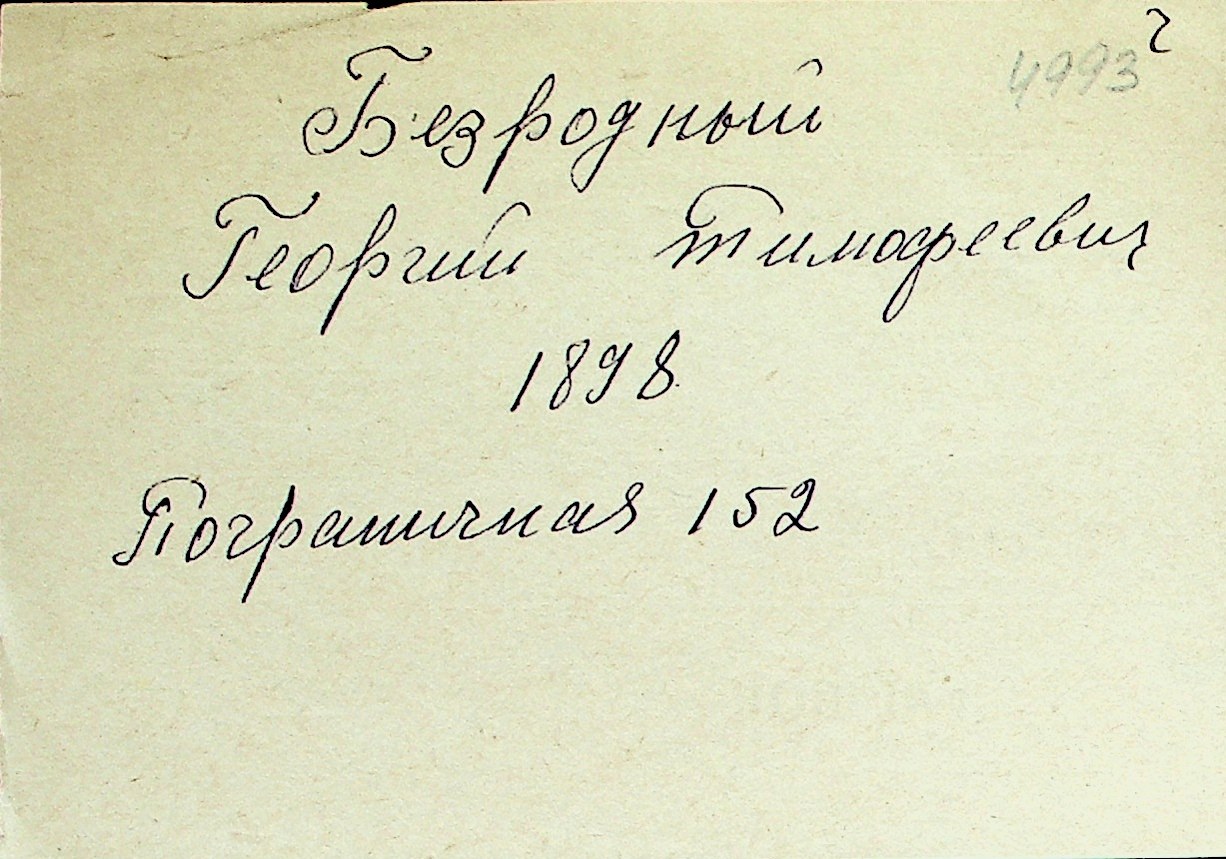 4993 г
Безродный
Георгий Тимофеевич
1898
Пограничная 152